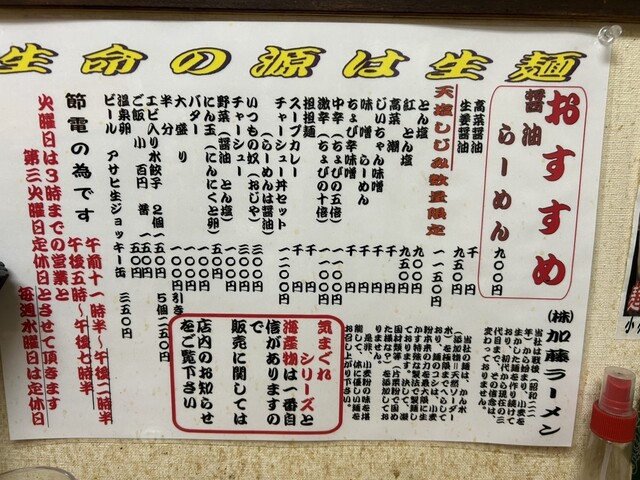 生命の源は生麺
おすすめ
醤油らーめん 九〇〇円
高菜醤油 千円
生姜醤油 九五〇円
天塩しじみ数量限定 一一五〇円
とん塩 九〇〇円
紅とん塩 九五〇円
高菜潮 九五〇円
じいちゃん味噌 千円
味噌らーめん 千円
ちょび辛味噌 千円
中辛(ちょびの五倍)
激辛(ちょびの十倍)
担担麺 千円
スープカレー 千円
チャーシュー丼セット 一二〇〇円
(らーめんは醤油)
いつもの奴(おじや) 三〇〇円
チャーシュー 三〇〇円
野菜(醤油 とん塩) 五〇〇円
にん玉(にんにくと卵) 一五〇円
バター 一〇〇円
大盛り 一〇〇円
半分 一〇〇円引き
エビ入り水餃子 2個 一五〇円 5個 三五〇円
ご飯 小 百円 普 一五〇円
温泉卵 一〇〇円
ビール アサヒ生ジョッキー缶 三五〇円
節電の為です
午前十一時半〜午後二時半
午後五時〜午後七時半
火曜日は3時までの営業と
第三火曜日定休日とさせて頂きます
毎週水曜日は定休日
㈱加藤ラーメン
当社は戦後(昭和二二
年)から始まり、小麦を
生かした麺を作り続けて
おり、初代から現在の三
代目まで、この信念は、
変わっておりません。
当社の麺は、かん水
気まぐれ
シリーズと
海産物は一番自
信がありますの
で
販売に関しては
店内のお知らせ
をご覧下さい